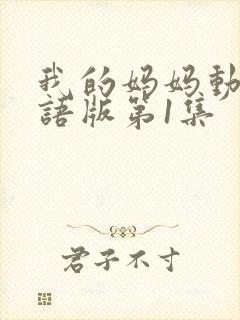 我的妈妈動
語版第1集
君子不寸